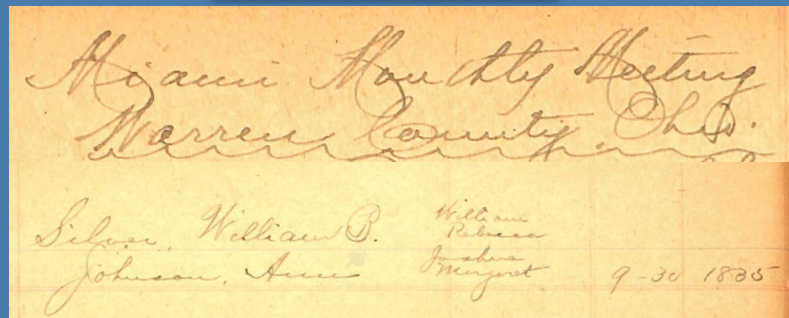 Miami Monthly Meeting
Warren County, Ohio.
Silver, William B. William Rebecca
Johnson, Ann Joshua Margaret 9-30 1835